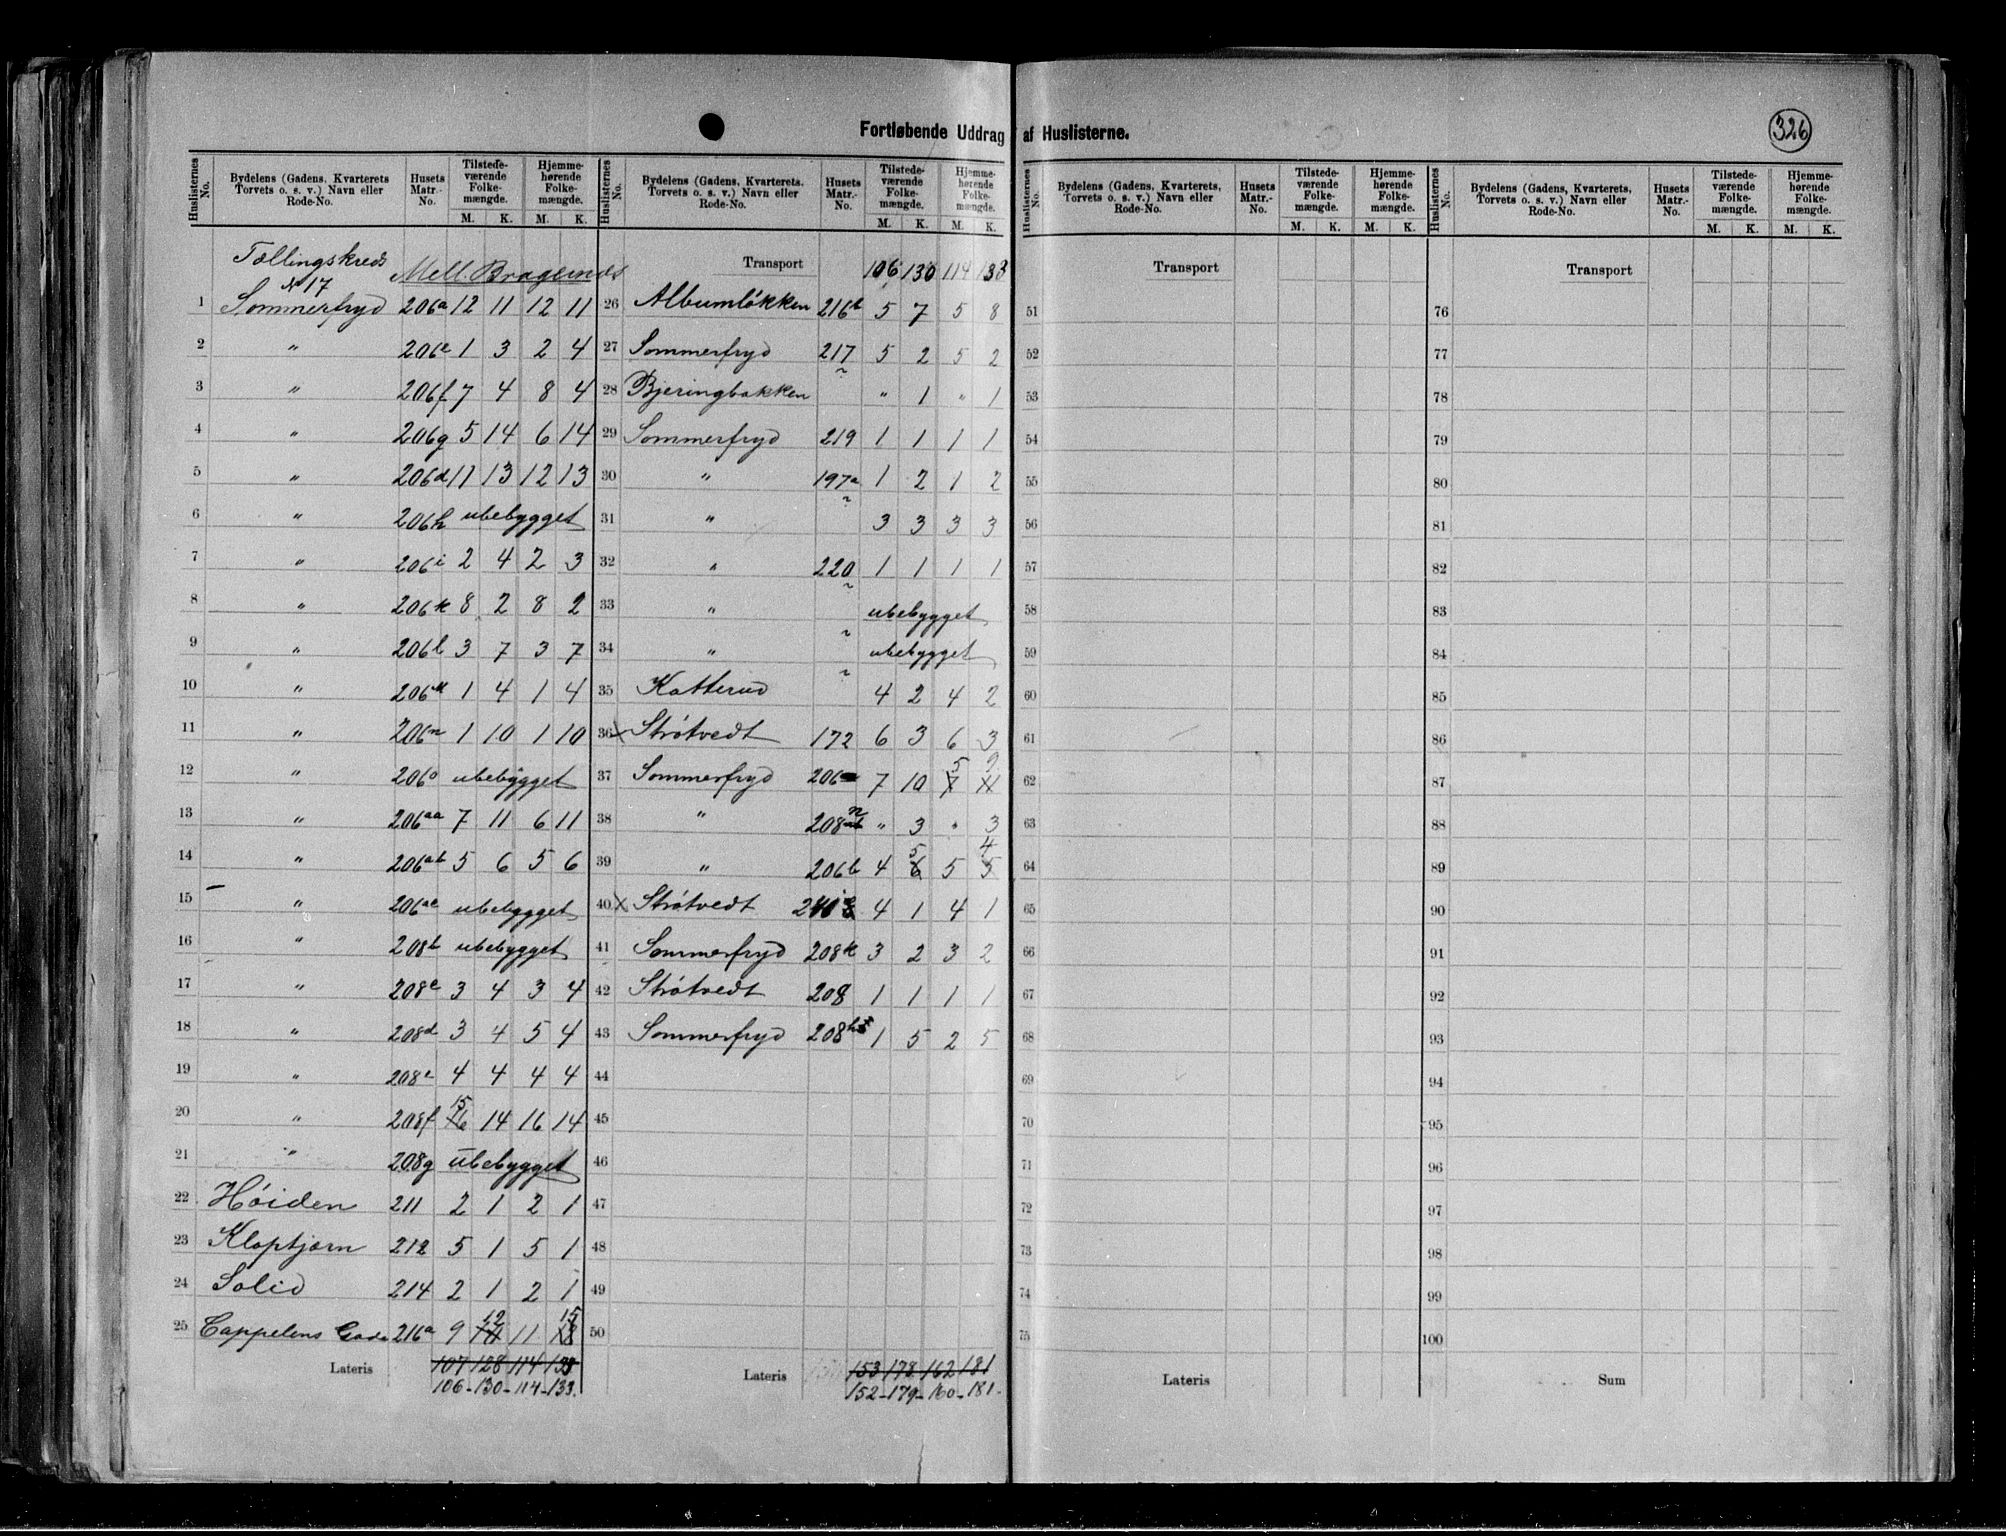 Fortløbende Uddrag af Huslisterne.
326
Huslisternes No. | Bydelens (Gadens, Kvarterets, Torvets o. s. v.) Navn eller Rode-No. | Husets Matr.-No. | Tilstedeværende Folkemængde. M. K. | Hjemmehørende Folkemængde. M. K.
Tællingskreds No 17 Mell. Bragernes
1 Sommerfryd 206a 12 11 12 11
2 " 206e 1 3 2 4
3 " 206f 7 4 8 4
4 " 206g 5 14 6 14
5 " 206d 11 13 12 13
6 " 206h ubebygget
7 " 206i 2 4 2 3
8 " 206k 8 2 8 2
9 " 206l 3 7 3 7
10 " 206 1 4 1 4
11 " 206n 1 10 1 10
12 " 206o ubebygget
13 " 206aa 7 11 6 11
14 " 206ab 5 6 5 6
15 " 206ac ubebygget
16 " 208b ubebygget
17 " 208c 3 4 3 4
18 " 208d 3 4 5 4
19 " 208e 4 4 4 4
20 " 208f 15 14 16 14
21 " 208g ubebygget
22 Høiden 211 2 1 2 1
23 Kloptjærn 212 5 1 5 1
24 Solid 214 2 1 2 1
25 Cappelens Gade 216a 9 12 11 15
Lateris 107 128 114 138
106 - 130 - 114 - 133.
Huslisternes No. | Bydelens (Gadens, Kvarterets, Torvets o. s. v.) Navn eller Rode-No. | Husets Matr.-No. | Tilstedeværende Folkemængde. M. K. | Hjemmehørende Folkemængde. M. K.
Transport 106 130 114 133
26 Albumløkken 216b 5 7 5 8
27 Sommerfryd 217 5 2 5 2
28 Bjeringbakken " 1 " 1
29 Sommerfryd 219 1 1 1 1
30 " 197a 1 2 1 2
31 " 3 3 3 3
32 " 220 1 1 1 1
33 " ubebygget
34 " ubebygget
35 Katterud 4 2 4 2
36 Strøtvedt 172 6 3 6 3
37 Sommerfryd 206 7 10 5 9
38 " 208n " 3 " 3
39 " 206b 4 5 5 4
40 Strøtvedt 4 1 4 1
41 Sommerfryd 208k 3 2 3 2
42 Strøtvedt 208 1 1 1 1
43 Sommerfryd 208 1 5 2 5
44
45
46
47
48
49
50
Lateris 153 178 162 181
152 - 179 - 160 - 181 -
Huslisternes No. | Bydelens (Gadens, Kvarterets, Torvets o. s. v.) Navn eller Rode-No. | Husets Matr.-No. | Tilstedeværende Folkemængde. M. K. | Hjemmehørende Folkemængde. M. K.
Transport
51
52
53
54
55
56
57
58
59
60
61
62
63
64
65
66
67
68
69
70
71
72
73
74
75
Lateris
Huslisternes No. | Bydelens (Gadens, Kvarterets, Torvets o. s. v.) Navn eller Rode-No. | Husets Matr.-No. | Tilstedeværende Folkemængde. M. K. | Hjemmehørende Folkemængde. M. K.
Transport
76
77
78
79
80
81
82
83
84
85
86
87
88
89
90
91
92
93
94
95
96
97
98
99
100
Sum